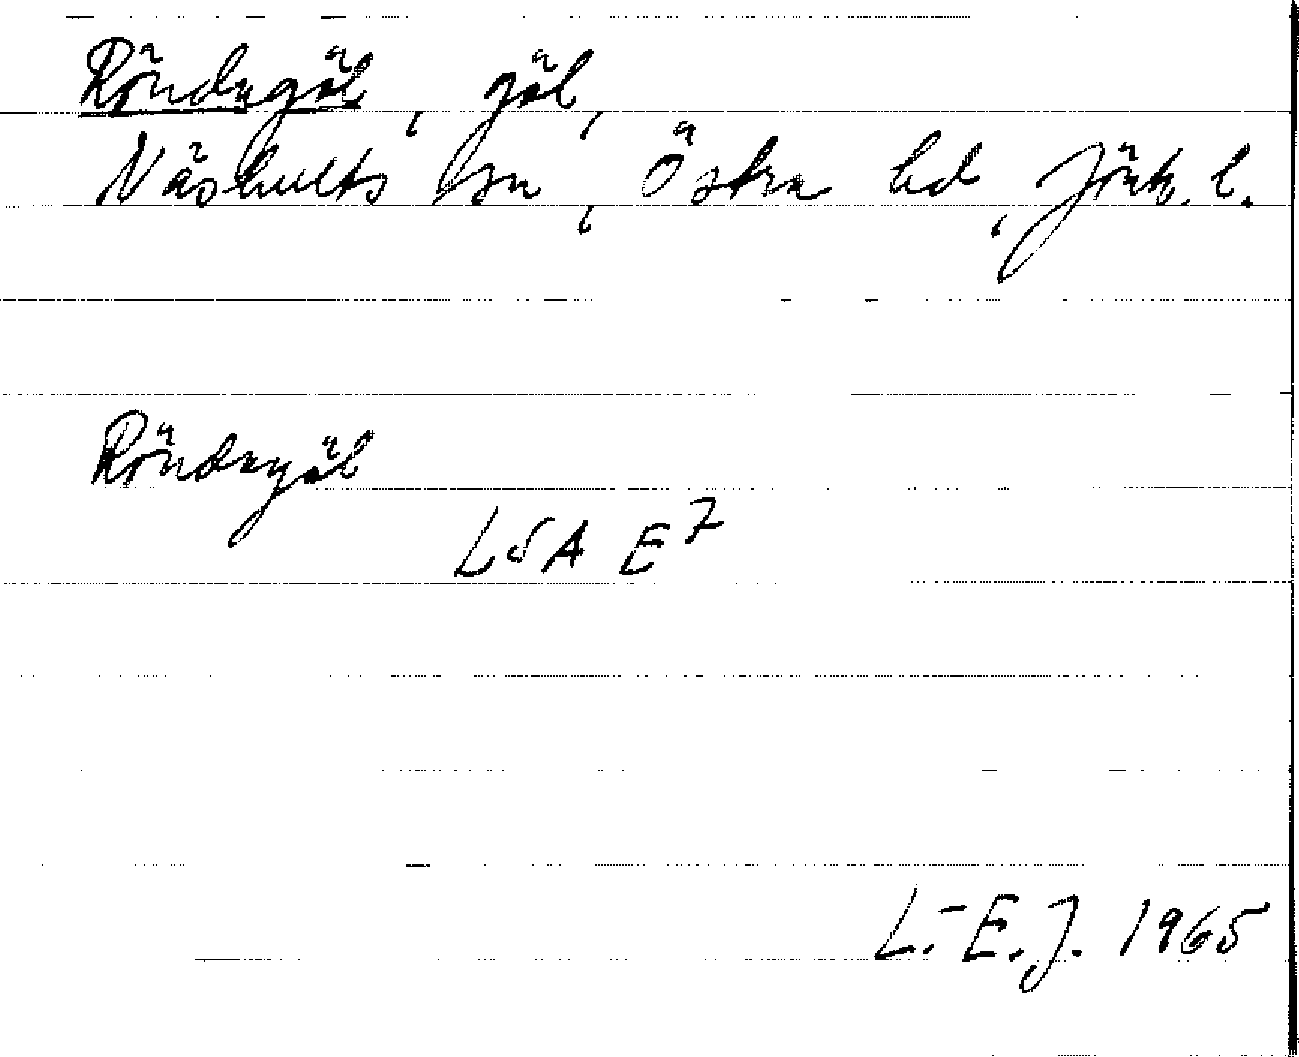 Röndegöl, göl,
Näshults sn, Östra hd, Jönk. l.
Röndegöl
LSA E7
L.-E.J. 1965